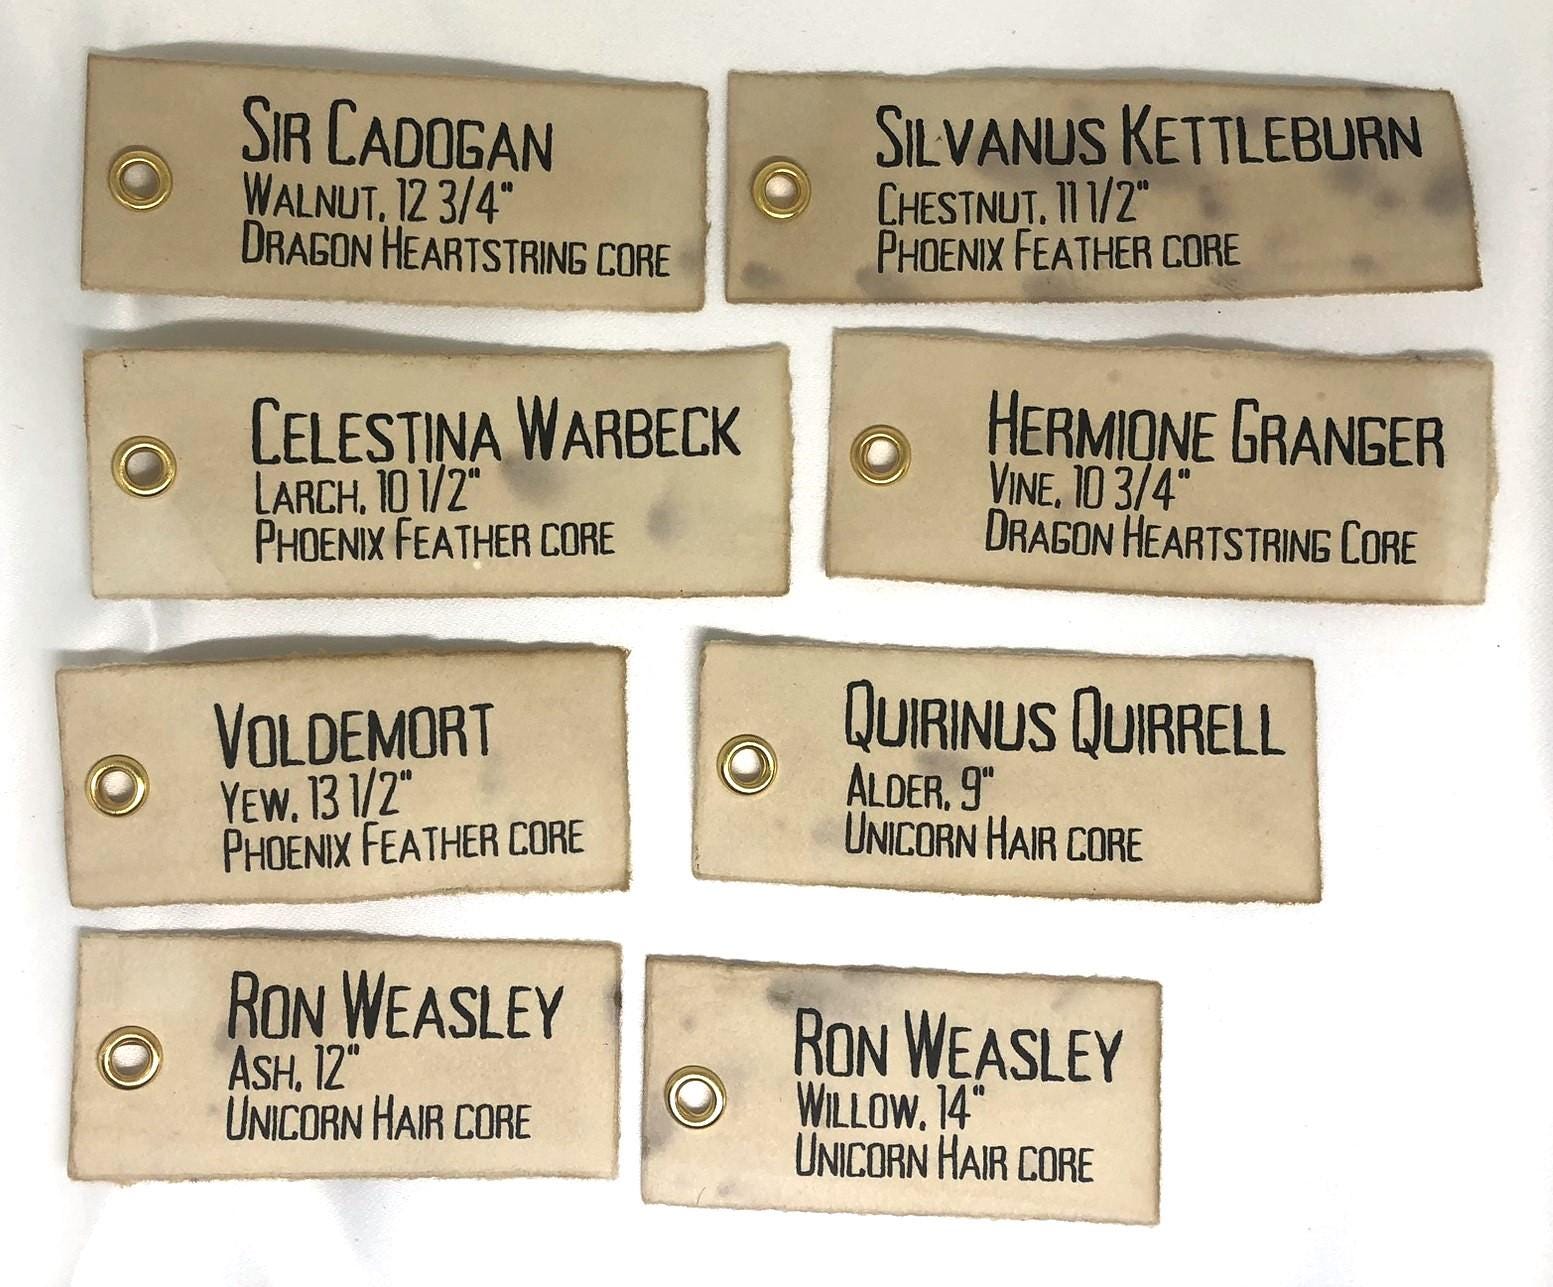 Sir Cadogan
Walnut, 12 3/4"
Dragon Heartstring core
Silvanus Kettleburn
Chestnut, 11 1/2"
Phoenix Feather core
Celestina Warbeck
Larch, 10 1/2"
Phoenix Feather core
Hermione Granger
Vine, 10 3/4"
Dragon Heartstring Core
Voldemort
Yew, 13 1/2"
Phoenix Feather core
Quirinus Quirrell
Alder, 9"
Unicorn Hair core
Ron Weasley
Ash, 12"
Unicorn Hair core
Ron Weasley
Willow, 14"
Unicorn Hair core